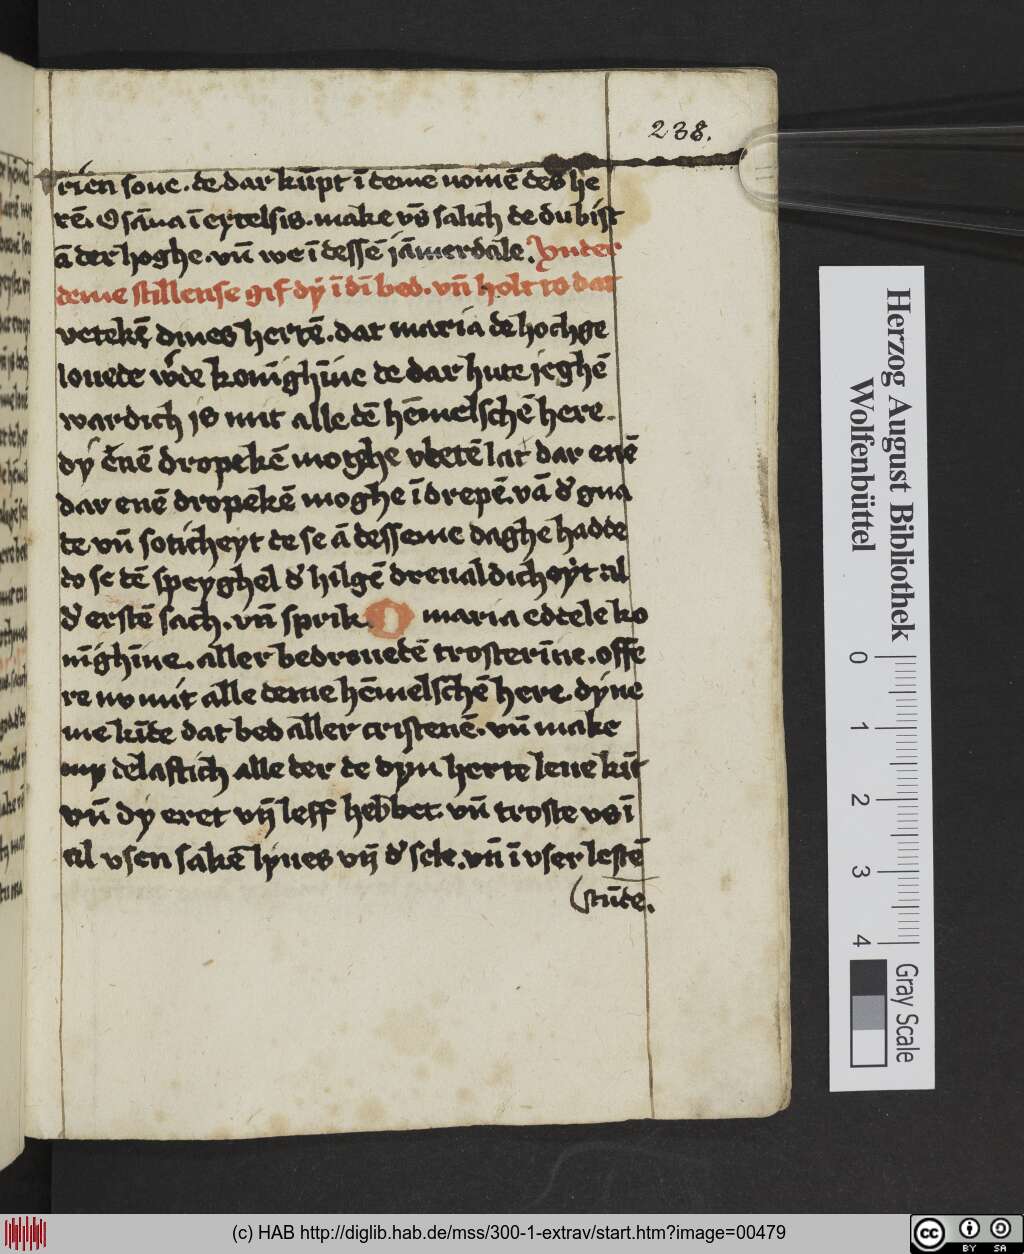 238.
rien sone. de dar kūpt ī deme nomē des he
rē. Osāna ī exelsis. make vn̄s salich de du bist
ā der hoghe. vn̄ we ī dessē jāmerdale. Vnder
deme stillense gif dy ī dī bed. vn̄ holt to dat
veteken dines hertē. dat maria de hochge
louede wͦde konīghīne de dar hute jeghē
wardich is mit alle dē hēmelschē here.
dy ēnē dropekē moghe vtetē lat dar enē
dar enē dropekē moghe ī drepē. vā dͤ gna
de vn̄ soticheyt de se ā desseme daghe hadde
do se dē speyghel dͤ hilgē dreualdicheyt al
dͤ erstē sach. vn̄ sprik. O maria eddele ko
nīghīne. aller bedrouedē trosterīne. offe
re nv mit alle deme hēmelschē here. dyne
me kīde dat bed aller cristenē. vn̄ make
my delaftich alle der de dyn herte leue kīt
vn̄ dy eret vn̄ leff hebbet. vn̄ troste vs ī
al vsen sakē lyues vn̄ dͤ sele. vn̄ ī vser lestē
stūde.
Herzog August Bibliothek
Wolfenbüttel
0 1 2 3 4
Gray Scale
(c) HAB http://diglib.hab.de/mss/300-1-extrav/start.htm?image=00479
cc BY SA